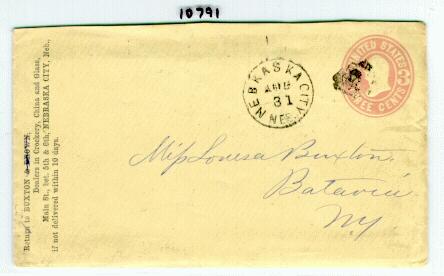 10791
Return to BUXTON & BROWN,
Dealers in Crockery, China and Glass,
Main St., bet. 5th & 6th, NEBRASKA CITY, Neb.,
if not delivered within 10 days.
NEBRASKA CITY
AUG
31
NEB.
UNITED STATES
3
THREE CENTS
Miss Louesa Buxton.
Batavia
NY